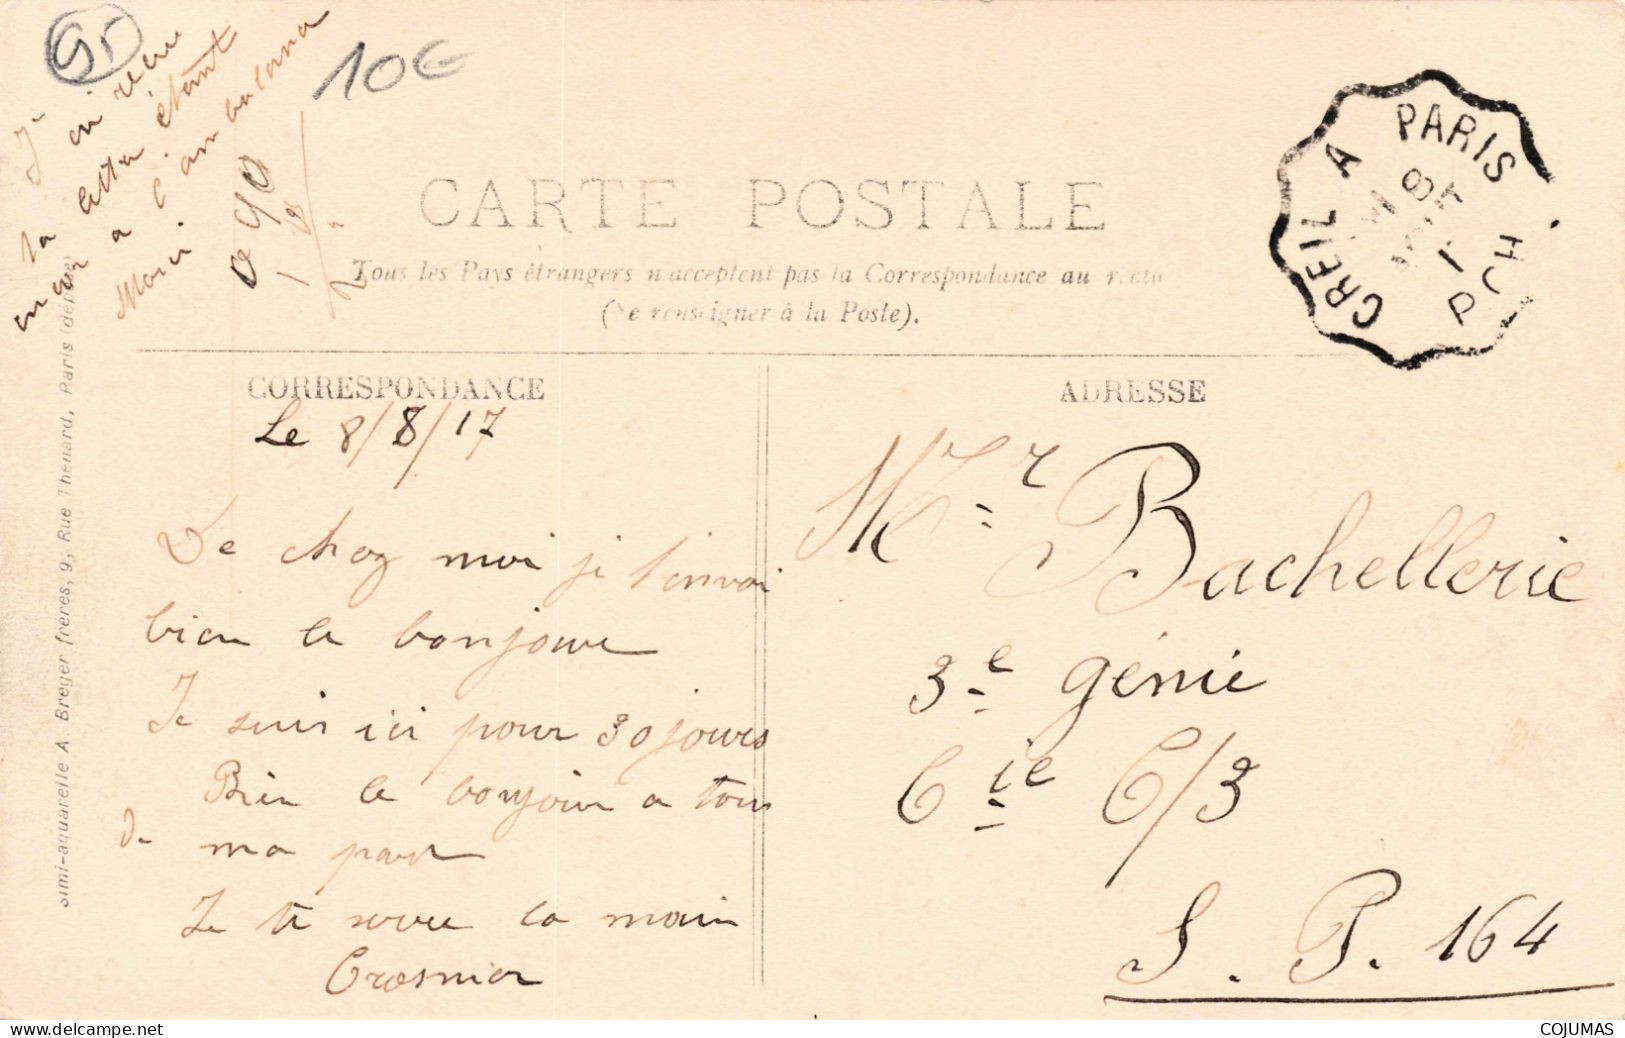 95
10€
J'ai reçu
ta lettre étant
encor a l'ambulance
Merci
CARTE POSTALE
Tous les Pays étrangers n'acceptent pas la Correspondance au recto
(Se renseigner à la Poste).
CREIL A PARIS
CORRESPONDANCE
ADRESSE
Le 8/8/17
De chez moi je t'envoi
bien le bonjour
Je suis ici pour 30 jours
Bien le bonjour a tous
de ma part
Je te serre la main
Crosnier
Mr Bachellerie
3e génie
Cie C/3
S. P. 164
Simi-aquarelle A. Breger frères, 9, Rue Thenard, Paris (déposé)
www.delcampe.net
COJUMAS